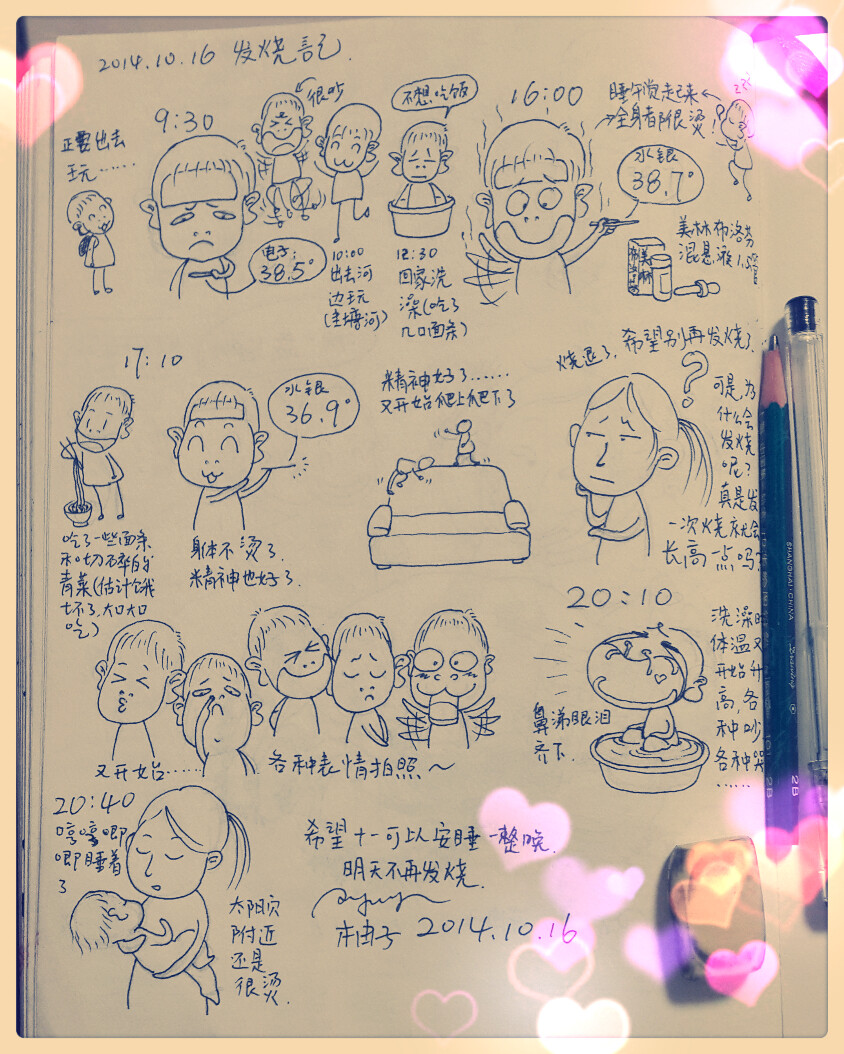 2014.10.16 发烧记.
正要出去
玩……
9:30
电子:
38.5°
很吵
10:00
出去河
边玩
不想吃饭
12:30
回家洗
澡(吃了
几口面条)
16:00
睡午觉起来
全身都很烫
水银
38.7°
美林布洛芬
混悬液
美林
17:10
吃了一些面条
和切碎的
青菜(估计饿
坏了,大口大口
吃)
水银
36.9°
身体不烫了.
精神也好了.
精神好了……
又开始爬上爬下了
烧退了,希望别再发烧了.
?
可是,为
什么会
发烧
呢?
真是发
一次烧就会
长高一点吗?
又开始……
各种表情拍照~
20:10
鼻涕眼泪
齐下.
洗澡时
体温又
开始升
高,各
种吵
各种哭
……
20:40
哼哼唧
唧睡着
了
太阳穴
附近
还是
很烫.
希望十一可以安睡一整晚.
明天不再发烧.
柚子 2014.10.16
SHANGHAI·CHINA
2B